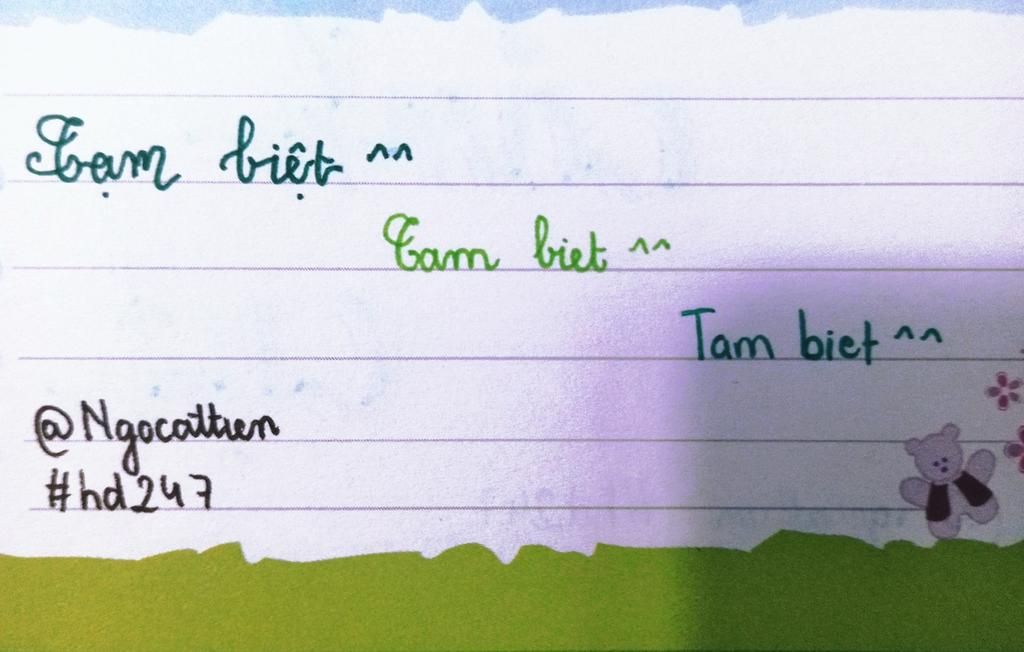 Tạm biệt ^^
Tam biet ^^
Tam biet ^^
@Ngocattien
#hd247